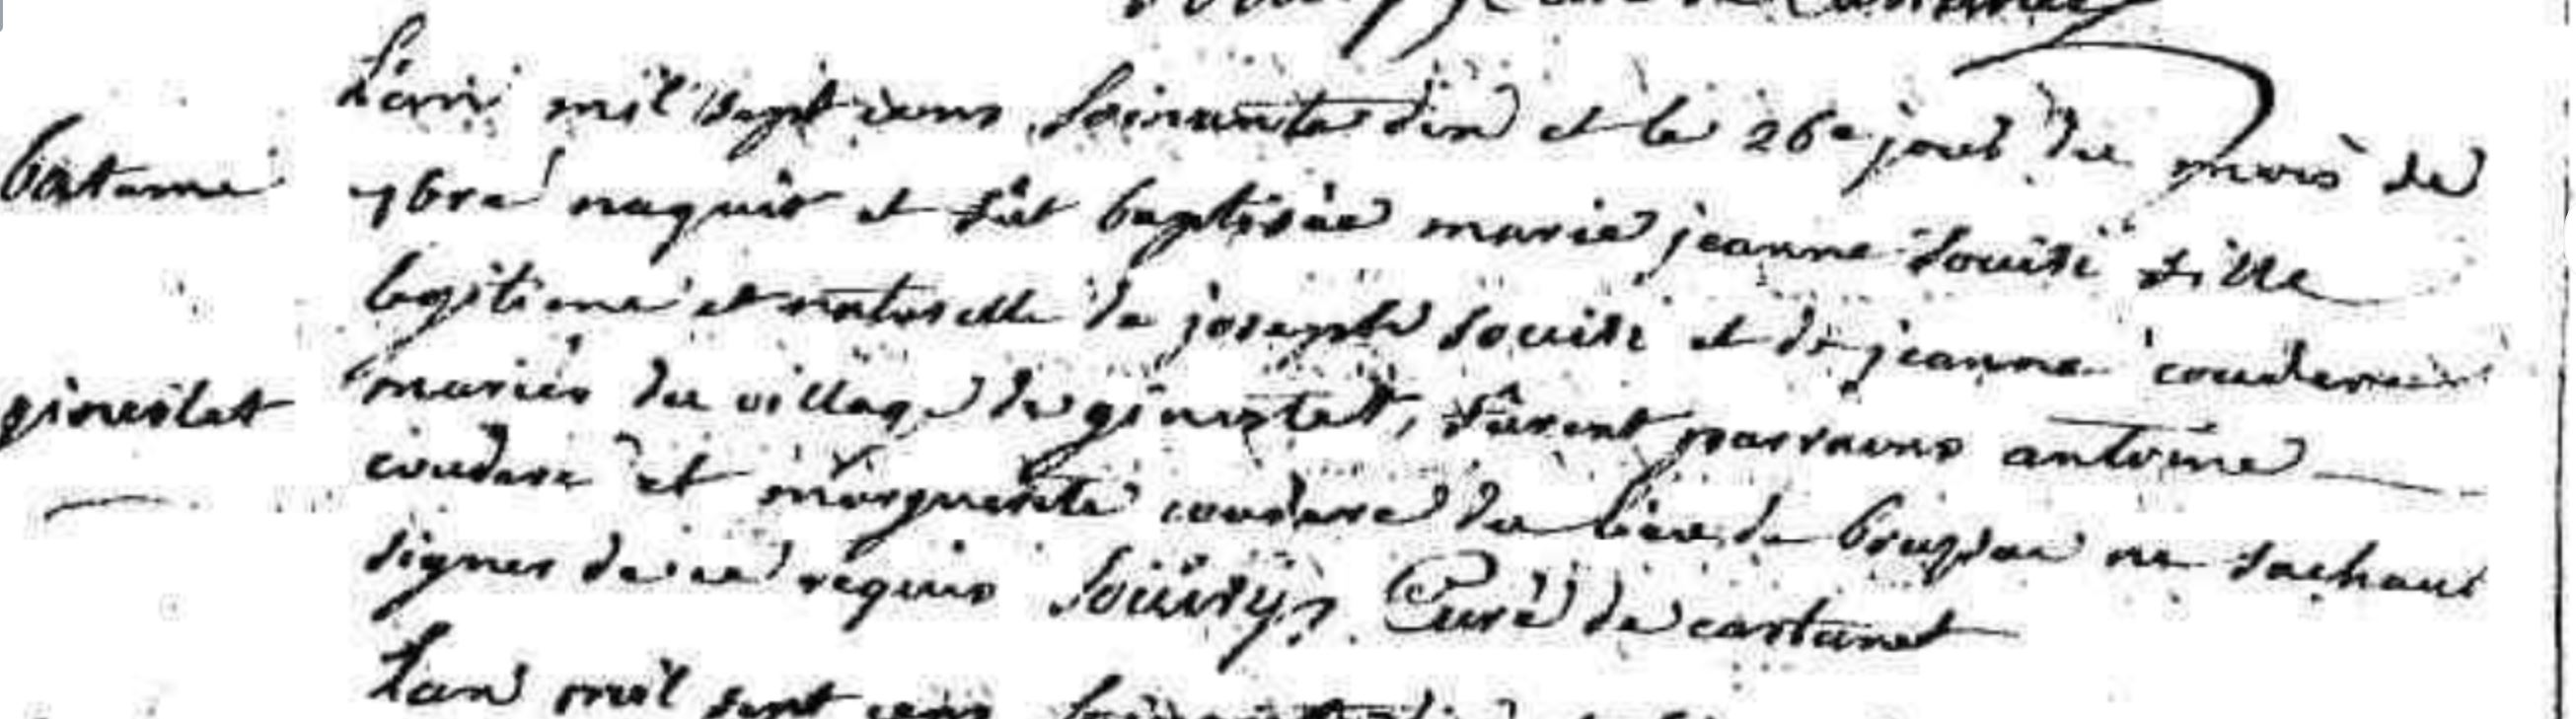 L'an mil sept cens soixante dix et le 26e jour du mois de
batême
7bre naquit et fût baptisée marie jeanne Souiri fille
legitime et naturelle de joseph Souiri et de jeanne couderc
ginestet
mariés du village de ginestet, furent parrains antoine
couderc et marguerite couderc du lieu de ne sachant
signer de ce requis Souïry, Curé de castanet
L'an mil sept cens